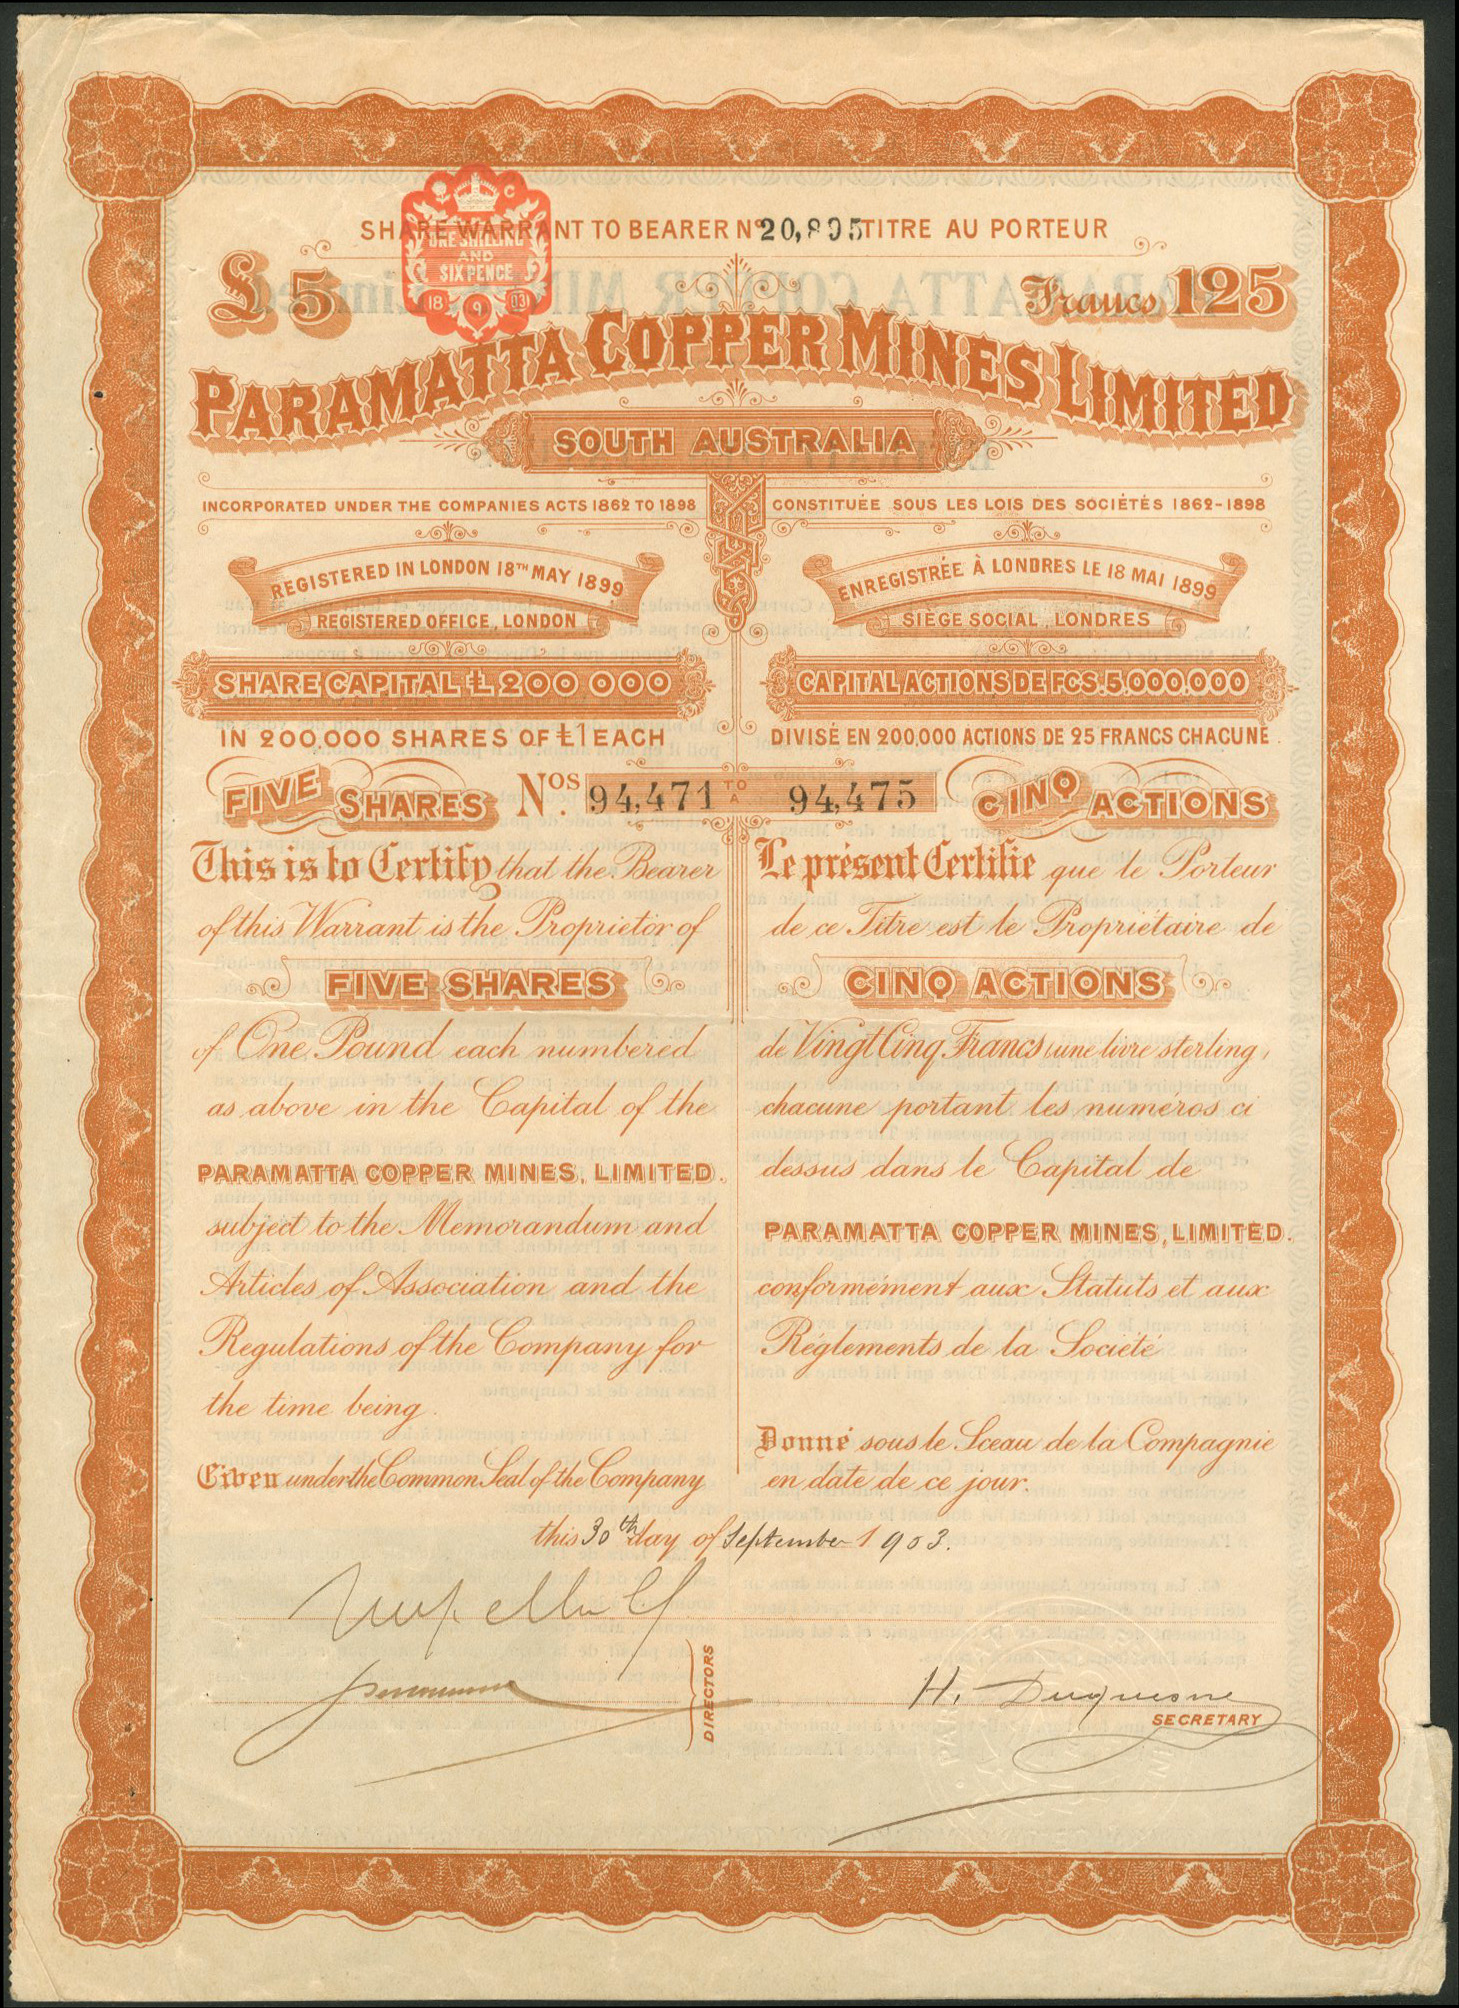 SHARE WARRANT TO BEARER Nº 20,895 TITRE AU PORTEUR
ONE SHILLING
AND
SIXPENCE
18 9 03
£5
Francs 125
PARAMATTA COPPER MINES LIMITED
SOUTH AUSTRALIA
INCORPORATED UNDER THE COMPANIES ACTS 1862 TO 1898
REGISTERED IN LONDON 18TH MAY 1899
REGISTERED OFFICE, LONDON
SHARE CAPITAL £200 000
IN 200,000 SHARES OF £1 EACH
CONSTITUÉE SOUS LES LOIS DES SOCIÉTÉS 1862-1898
ENREGISTRÉE À LONDRES LE 18 MAI 1899
SIÈGE SOCIAL, LONDRES
CAPITAL ACTIONS DE FCS. 5,000,000
DIVISÉ EN 200,000 ACTIONS DE 25 FRANCS CHACUNE
FIVE SHARES Nos. 94,471 TO A 94,475 CINQ ACTIONS
This is to Certify that the Bearer
of this Warrant is the Proprietor of
FIVE SHARES
of One Pound each numbered
as above in the Capital of the
PARAMATTA COPPER MINES, LIMITED.
subject to the Memorandum and
Articles of Association and the
Regulations of the Company for
the time being.
Given under the Common Seal of the Company
Le présent Certifie que le Porteur
de ce Titre est le Propriétaire de
CINQ ACTIONS
de Vingt Cinq Francs (une livre sterling)
chacune portant les numéros ci
dessus dans le Capital de
PARAMATTA COPPER MINES, LIMITED.
conformément aux Statuts et aux
Réglements de la Société
Donné sous le Sceau de la Compagnie
en date de ce jour.
this 30th day of September 1903.
DIRECTORS
H. Duquesne
SECRETARY